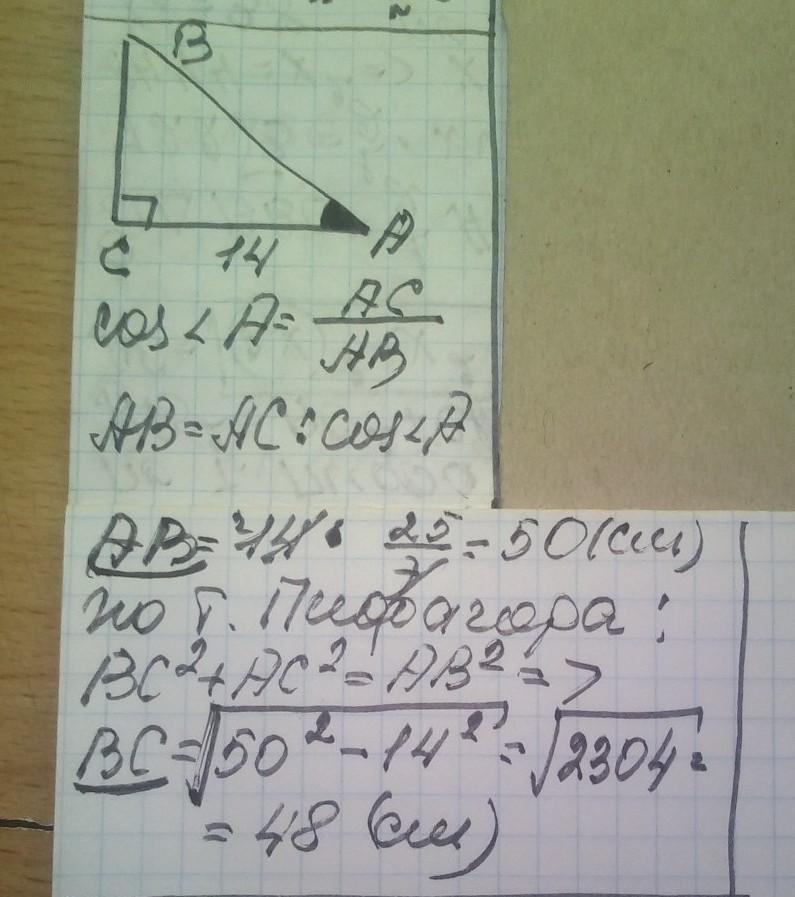 B
C 14 A
cos∠A = AC/AB
AB = AC : cos∠A
AB = 14 · 25/7 = 50 (см)
по т. Пифагора :
BC² + AC² = AB² =>
BC = √50² - 14² = √2304 =
= 48 (см)